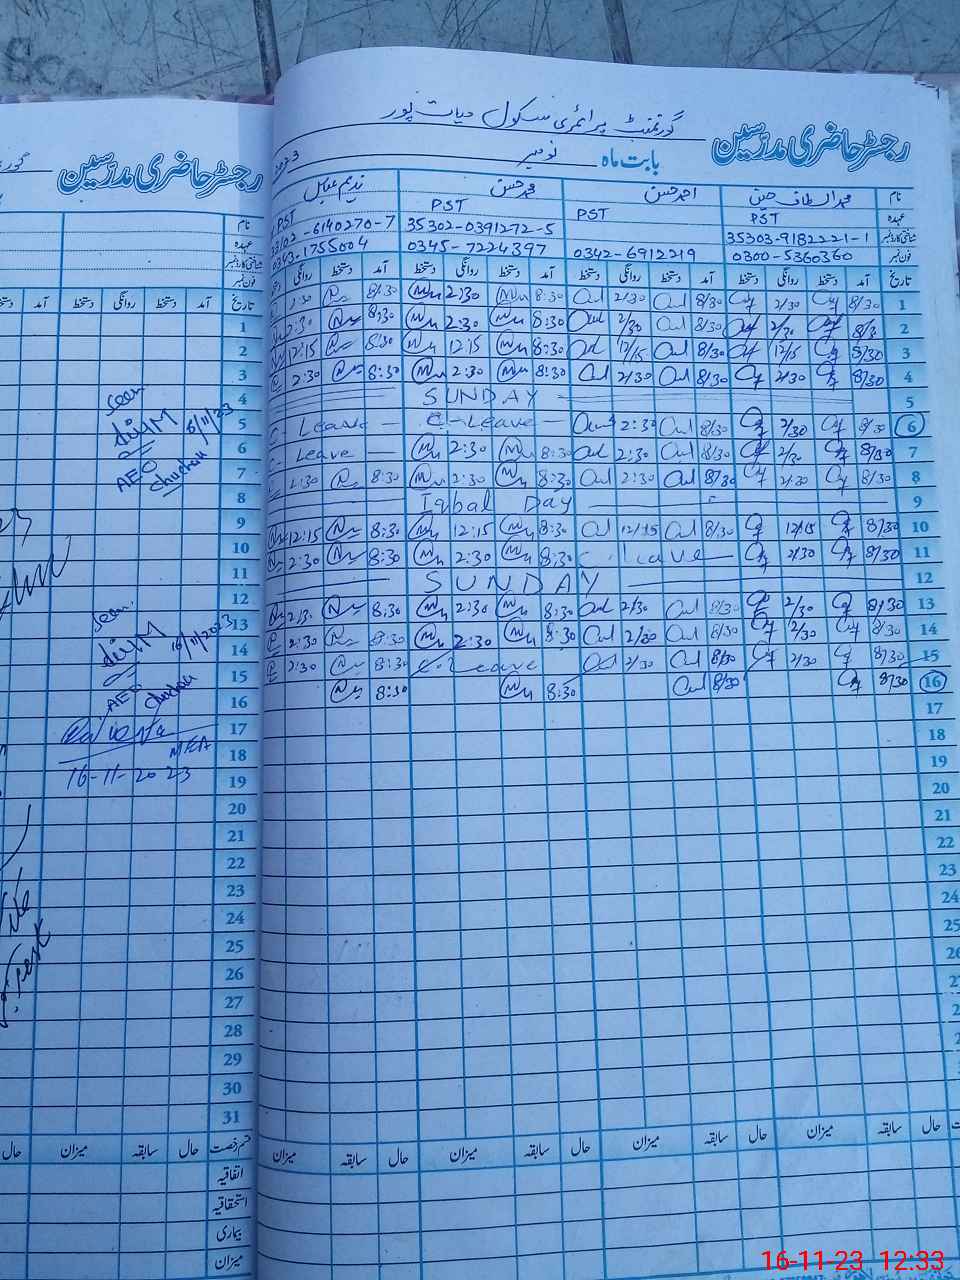 گورنمنٹ پرائمری سکول حیات پور
رجسٹر حاضری مدرسین
بابت ماہ نومبر 2023
نام محمد الطاف حسین احمد حسن محمد حسن ندیم عباس
عہدہ PST PST PST PST
شناختی کارڈ نمبر 35303-9182221-1 35302-0391272-5 33102-6140270-7
فون نمبر 0300-5360360 0342-6912219 0345-7224397 0343-1755004
تاریخ آمد دستخط روانگی دستخط آمد دستخط روانگی دستخط آمد دستخط روانگی دستخط آمد دستخط روانگی
1 8/30 2/30 8/30 2/30 8:30 2:30 8:30 2:30
2 8/3 2/30 8/30 2/30 8:30 2:30 8:30 2:30
3 8/30 12/15 8/30 12/15 8:30 12:15 8:30 12:15
4 8/30 2/30 8/30 2/30 8:30 2:30 8:30 2:30
5 SUNDAY
6 8/30 2/30 8/30 2:30 C-Leave C-Leave
7 8/30 2/30 8/30 2:30 8:30 2:30 C-Leave
8 8/30 2/30 8/30 2:30 8:30 2:30 8:30 2:30
9 Iqbal Day
10 8/30 12/15 8/30 12/15 8:30 12:15 8:30 12:15
11 8/30 2/30 C. Leave 8:30 2:30 8:30 2:30
12 SUNDAY
13 8/30 2/30 8/30 2/30 8:30 2:30 8:30 2:30
14 8/30 2/30 8/30 2/30 8:30 2:30 8:30 2:30
15 8/30 2/30 8/30 2/30 C-Leave 8:30 2:30
16 8/30 8/30 8:30 8:30
17
18
19
20
21
22
23
24
25
26
حال سابقہ میزان حال سابقہ میزان حال سابقہ میزان حال سابقہ میزان
رجسٹر حاضری مدرسین
نام
عہدہ
شناختی کارڈ نمبر
فون نمبر
تاریخ آمد دستخط روانگی دستخط آمد
1
2
3
4
5
6
7
8
9
10
11
12
13
14
15
16
17
18
19
20
21
22
23
24
25
26
27
28
29
30
31
Seen
AEO
Chuchak
6/11/23
Seen
16/11/2023
AEO
Chuchak
MEA
16-11-2023
قسم رخصت حال سابقہ میزان حال
اتفاقیہ
استحقاقیہ
بیماری
میزان
16-11-23 12:33